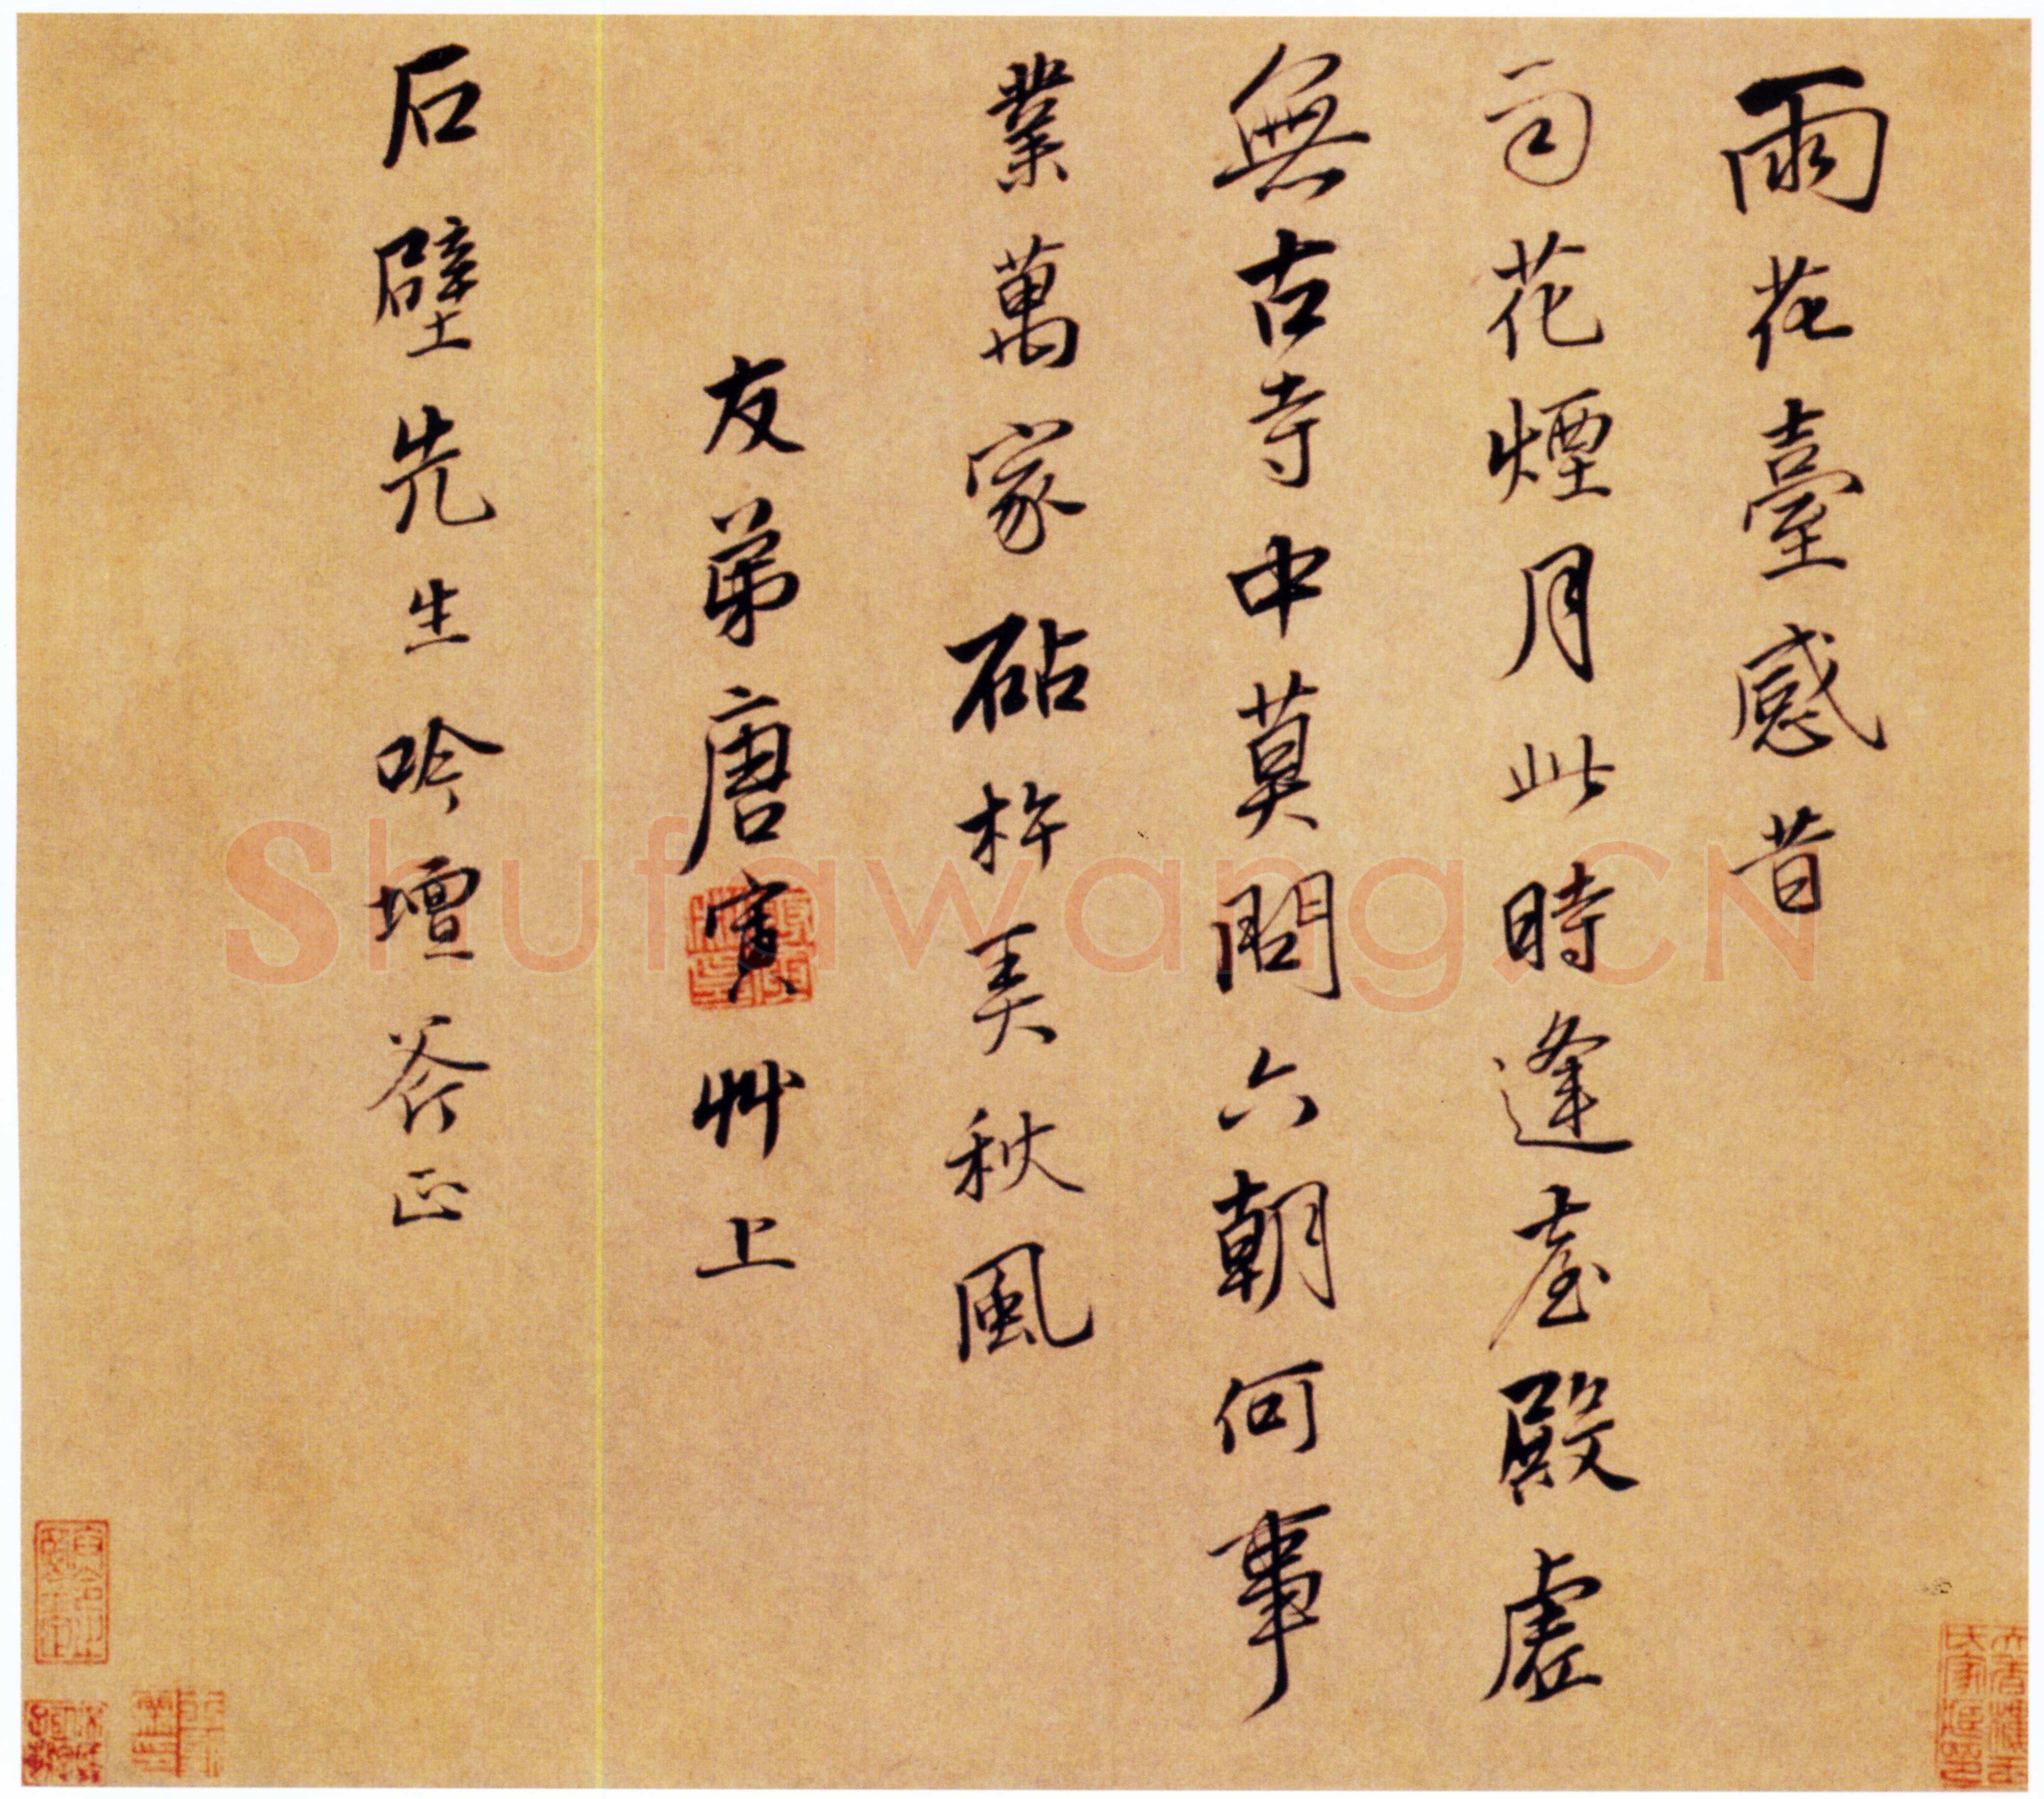 雨花臺感昔
雨花煙月此時逢臺殿虛
無古寺中莫問六朝何事
業萬家砧杵美秋風
友弟唐寅艸上
石壁先生吟壇斧正
Shufawang.CN